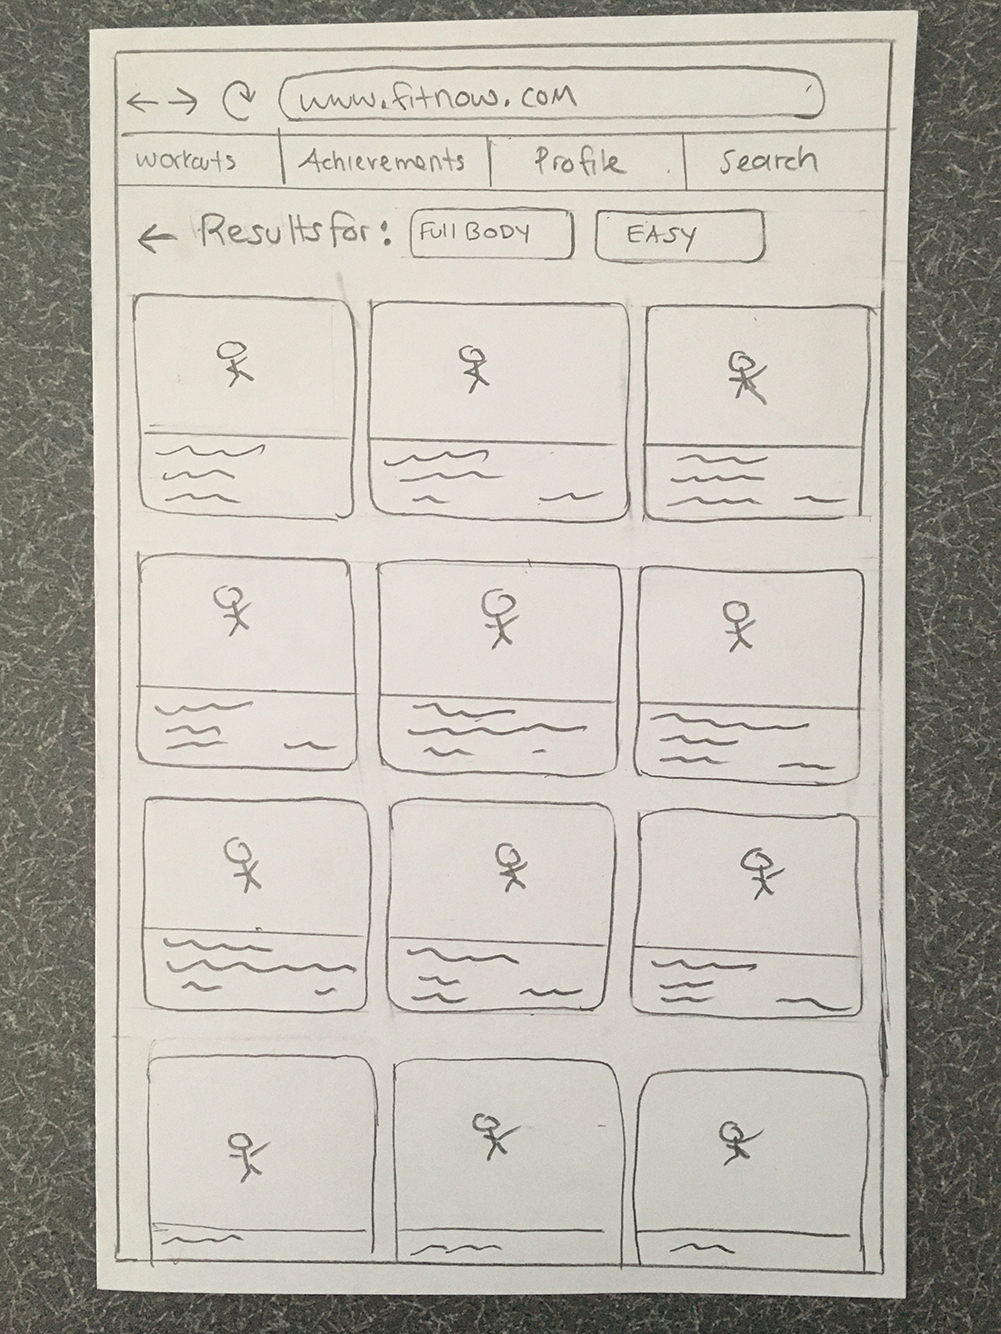 www.fitnow.com
Workouts Achievements Profile Search
← Results for: Full BODY EASY